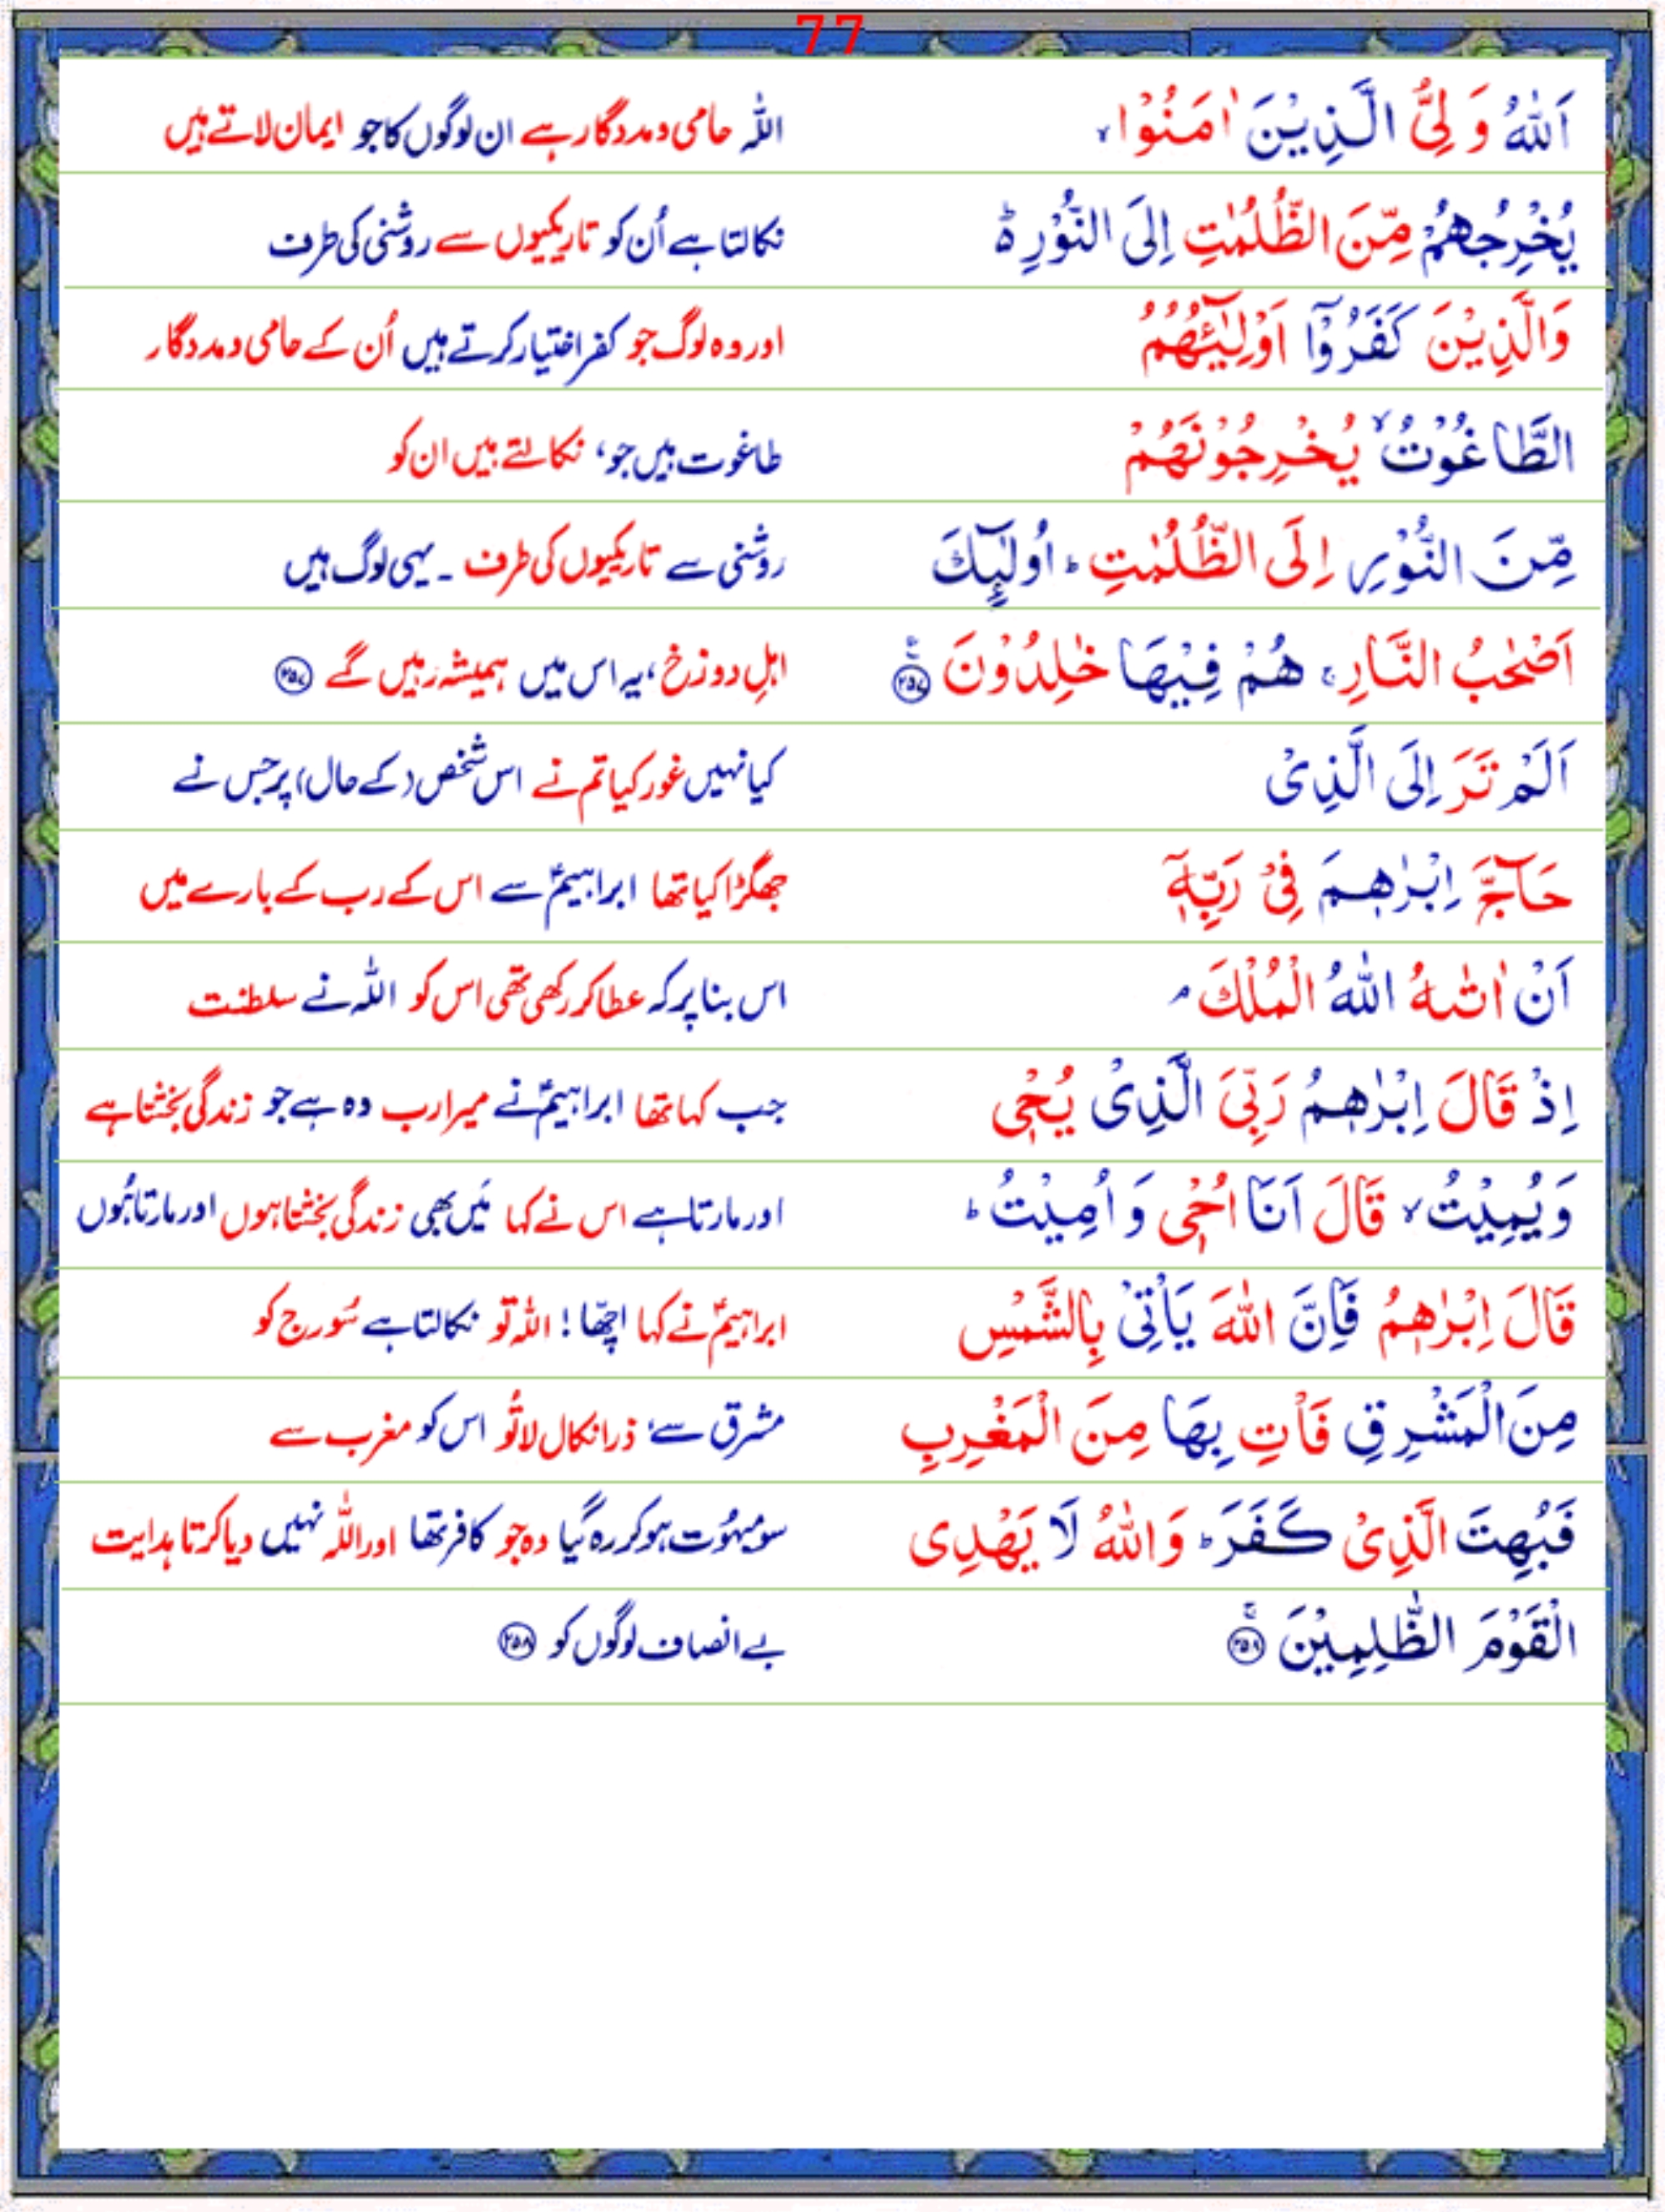 77
اَللّٰهُ وَلِیُّ الَّذِیْنَ اٰمَنُوْا ۙ اللہ حامی و مددگار ہے ان لوگوں کا جو ایمان لاتے ہیں
یُخْرِجُهُمْ مِّنَ الظُّلُمٰتِ اِلَی النُّوْرِ ۬ؕ نکالتا ہے اُن کو تاریکیوں سے روشنی کی طرف
وَالَّذِیْنَ كَفَرُوْۤا اَوْلِیٰٓـُٔهُمُ اور وہ لوگ جو کفر اختیار کرتے ہیں اُن کے حامی و مددگار
الطَّاغُوْتُ ۙ یُخْرِجُوْنَهُمْ طاغوت ہیں جو، نکالتے ہیں ان کو
مِّنَ النُّوْرِ اِلَی الظُّلُمٰتِ ؕ اُولٰٓىِٕكَ روشنی سے تاریکیوں کی طرف ۔ یہی لوگ ہیں
اَصْحٰبُ النَّارِ ۚ هُمْ فِیْهَا خٰلِدُوْنَ ۟۠ ﴿۲۵۷﴾ اہلِ دوزخ، یہ اس میں ہمیشہ رہیں گے ﴿۲۵۷﴾
اَلَمْ تَرَ اِلَی الَّذِیْ کیا نہیں غور کیا تم نے اس شخص (کے حال) پر جس نے
حَآجَّ اِبْرٰهٖمَ فِیْ رَبِّهٖۤ جھگڑا کیا تھا ابراہیمؑ سے اس کے رب کے بارے میں
اَنْ اٰتٰىهُ اللّٰهُ الْمُلْكَ ۘ اس بنا پر کہ عطا کر رکھی تھی اس کو اللہ نے سلطنت
اِذْ قَالَ اِبْرٰهٖمُ رَبِّیَ الَّذِیْ یُحْیٖ جب کہا تھا ابراہیمؑ نے میرا رب وہ ہے جو زندگی بخشتا ہے
وَیُمِیْتُ ۙ قَالَ اَنَا اُحْیٖ وَاُمِیْتُ ؕ اور مارتا ہے اس نے کہا مَیں بھی زندگی بخشتا ہوں اور مارتا ہُوں
قَالَ اِبْرٰهٖمُ فَاِنَّ اللّٰهَ یَاْتِیْ بِالشَّمْسِ ابراہیمؑ نے کہا اچھّا! اللہ تو نکالتا ہے سُورج کو
مِنَ الْمَشْرِقِ فَاْتِ بِهَا مِنَ الْمَغْرِبِ مشرق سے، ذرا نکال لا تُو اس کو مغرب سے
فَبُهِتَ الَّذِیْ كَفَرَ ؕ وَاللّٰهُ لَا یَهْدِی سو مبہُوت ہو کر رہ گیا وہ جو کافر تھا اور اللہ نہیں دیا کرتا ہدایت
الْقَوْمَ الظّٰلِمِیْنَ ۚ ﴿۲۵۸﴾ بے انصاف لوگوں کو ﴿۲۵۸﴾